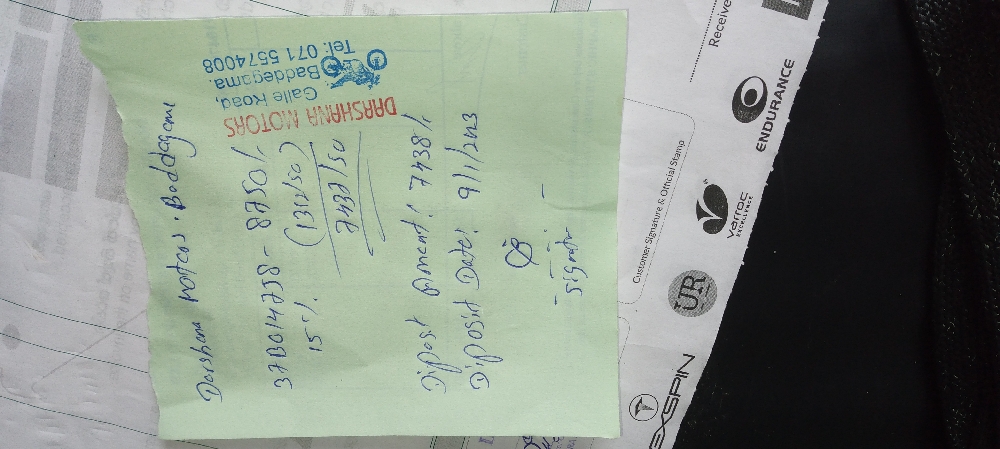 Darshana motors. Baddagama
37B014758 - 8750/.
15%. (1312/50)
7437/50
DARSHANA MOTORS
Galle Road,
Baddegama.
Tel: 071 5574008
Diposit Amont: 7438/.
Diposit Date: 9/1/2023
Signatur
Receive
Customer Signature & Official Stamp
ENDURANCE
varroc
EXCELLENCE
UR
EXSPIN